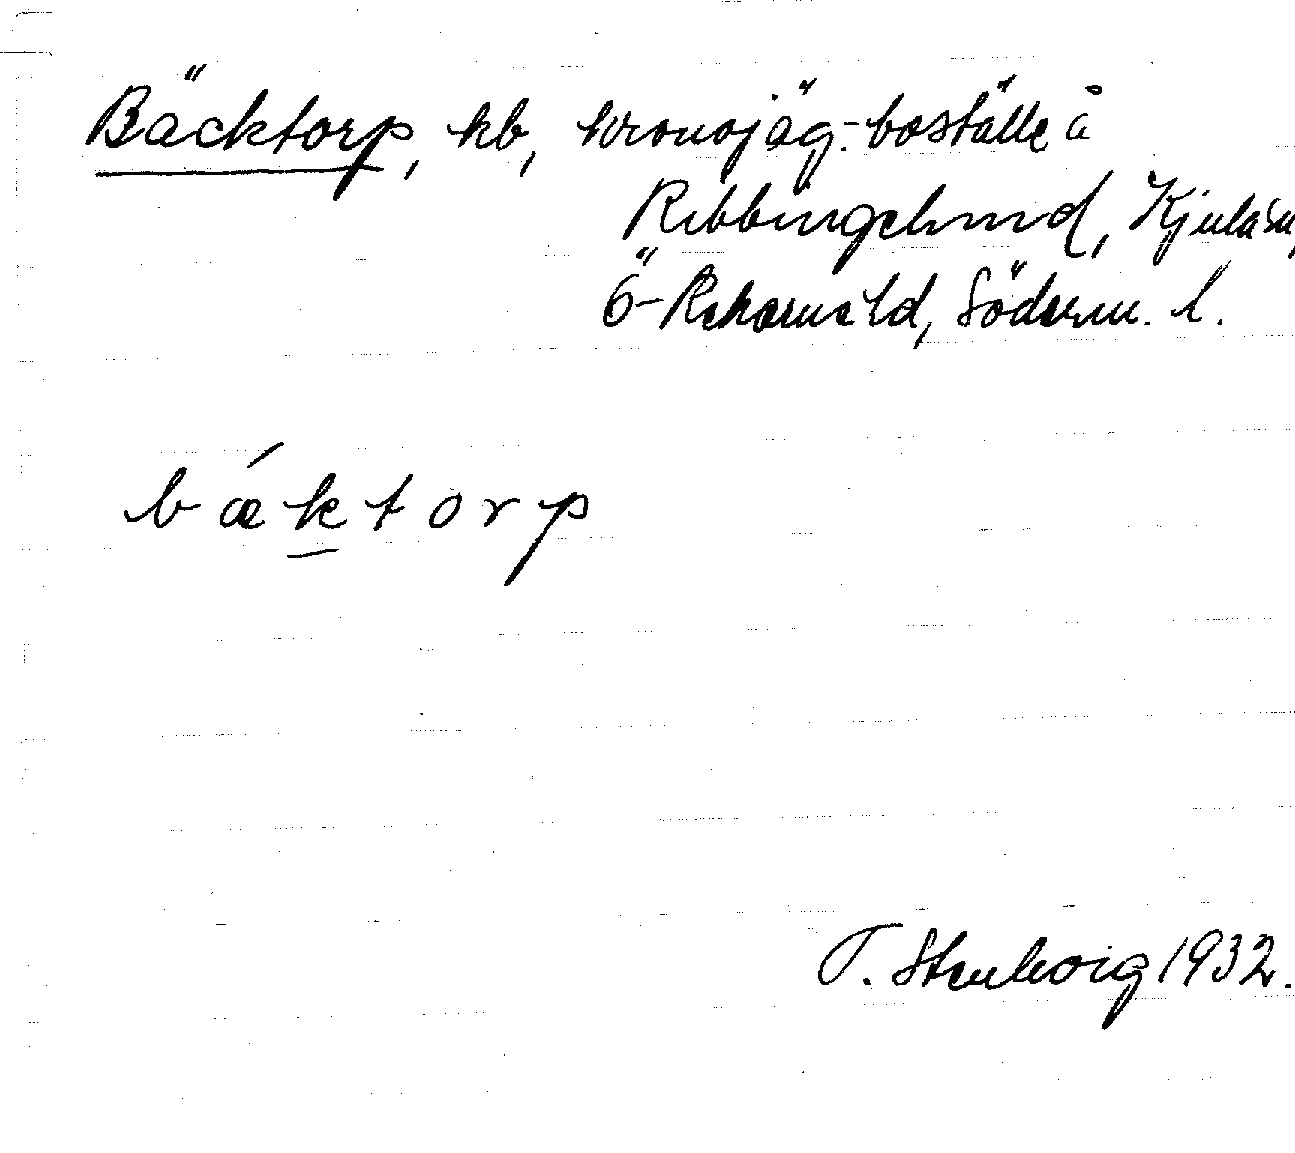 Bäcktorp, hb, kronojäg.-boställe å
Ribbingelund, Kjula sn,
Ö-Rekarne hd, Söderm. l.
bǽktorp
T. Stenborg 1932.